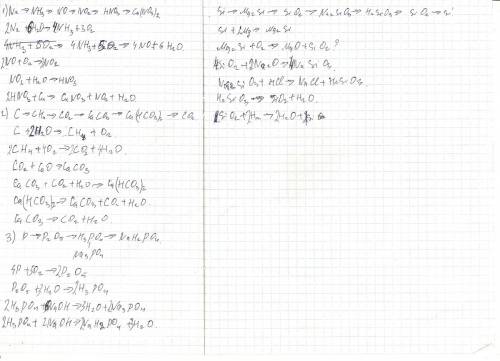 1) N₂ → NH₃ → NO → NO₂ → HNO₃ → Cu(NO₃)₂
2N₂ + 6H₂O → 4NH₃ + 3O₂
4NH₃ + 5O₂ → 4NH₃ + 5O₂ → 4NO + 6H₂O
2NO + O₂ → 2NO₂
NO₂ + H₂O → HNO₃
2HNO₃ + Cu → CuNO₃ + NO₂ + H₂O
2) C → CH₄ → CO₂ → CaCO₃ → Ca(HCO₃)₂ → CO₂
C + 2H₂O → CH₄ + O₂
2CH₄ + 4O₂ → 2CO₂ + 4H₂O
CO₂ + CaO → CaCO₃
CaCO₃ + CO₂ + H₂O → Ca(HCO₃)₂
Ca(HCO₃)₂ → CaCO₃ + CO₂ + H₂O
CaCO₃ → CO₂ + H₂O
3) P → P₂O₅ → H₃PO₄ → NaH₂PO₄
Na₃PO₄
4P + 5O₂ → 2P₂O₅
P₂O₅ + 3H₂O → 2H₃PO₄
2H₃PO₄ + 6NaOH → 3H₂O + 2Na₃PO₄
2H₃PO₄ + 2NaOH → 2NaH₂PO₄ + 2H₂O
Si → Mg₂Si → SiO₂ → Na₂SiO₃ → H₂SiO₃ → SiO₂ → Si
Si + 2Mg → Mg₂Si
Mg₂Si + O₂ → MgO + SiO₂?
Na₂SiO₃ + HCl → NaCl + H₂SiO₃
H₂SiO₃ → SiO₂ + H₂O